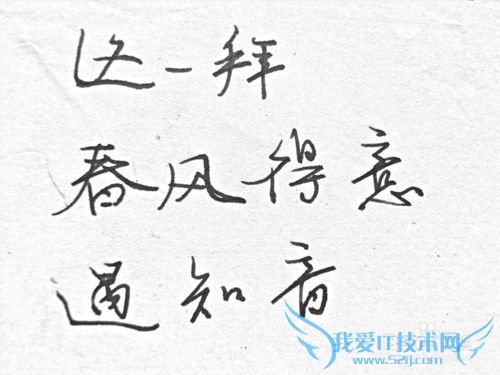 这一拜
春风得意
遇知音
我爱IT技术网
www.52ij.com